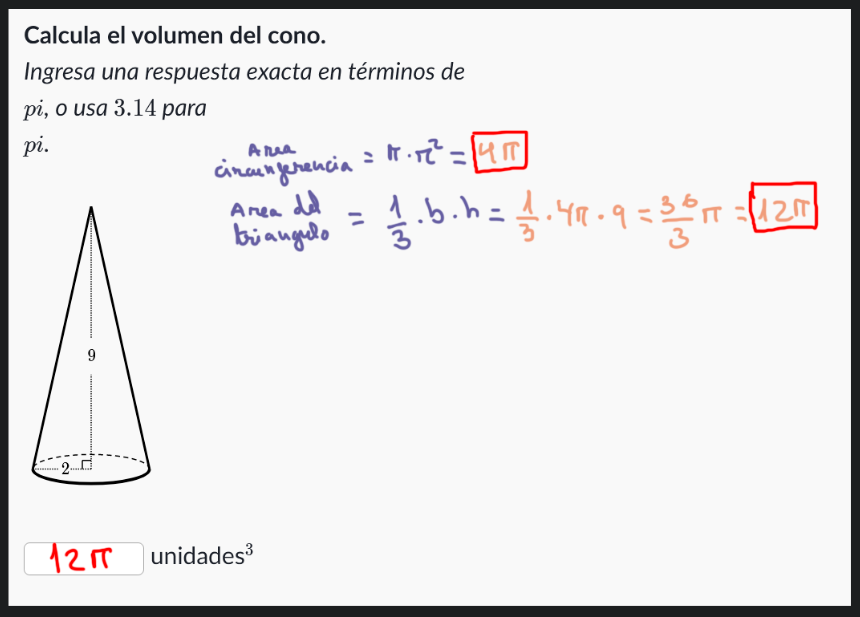 Calcula el volumen del cono.
Ingresa una respuesta exacta en términos de
pi, o usa 3.14 para
pi.
Area
circunferencia = π · r² = 4π
Area del
triangulo = 1/3 · b · h = 1/3 · 4π · 9 = 36/3 π = 12π
9
2
12π unidades³